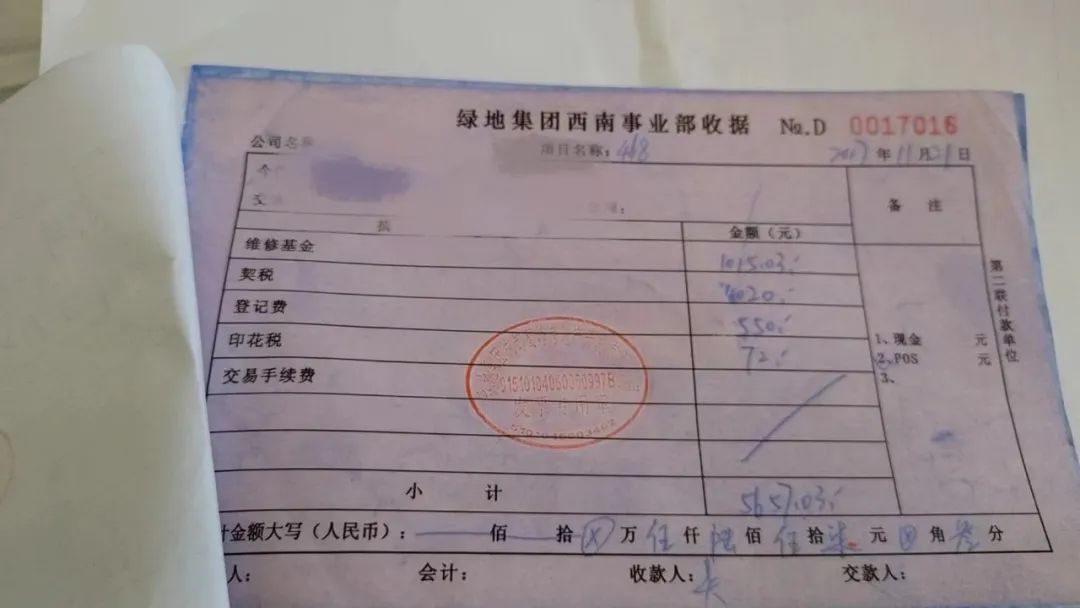 绿地集团西南事业部收据 №.D 0017016
公司名称 项目名称：468 2017年11月21日
今
交
备 注
金额（元）
维修基金 1015.03
契税 4020
登记费 550
印花税 72
交易手续费
1、现金 元
2、POS 元
3、
第二联付款单位
发票专用章
小 计 5657.03
计金额大写（人民币）： 佰 拾 ⊗ 万 伍 仟 陆 佰 伍 拾 柒 元 ⊗ 角 叁 分
人： 会计： 收款人： 交款人：